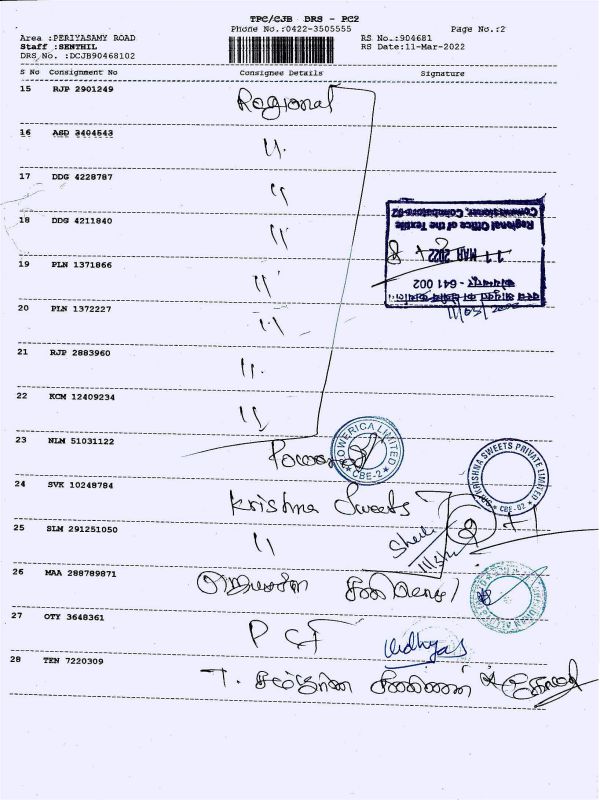 TPC/CJB DRS - PC2
Phone No.:0422-3505555 Page No.:2
Area :PERIYASAMY ROAD RS No.:904681
Staff :SENTHIL RS Date:11-Mar-2022
DRS No. :DCJB90468102
S No Consignment No Consignee Details Signature
15 RJP 2901249 Regional
16 ASD 3404543 11.
17 DDG 4228787 11
18 DDG 4211840 11
Regional Office of the Textile
Commissioner, Coimbatore-02
11 MAR 2022
कोयम्बटूर - 641 002
वस्त्र आयुक्त का क्षेत्रीय कार्यालय
19 PLN 1371866 11
20 PLN 1372227 11
21 RJP 2883960 11.
22 KCM 12409234 11
23 NLM 51031122
POWERICA LIMITED
CBE-2
24 SVK 10248784 Krishna Sweets
SRI KRISHNA SWEETS PRIVATE LIMITED
CBE-02
25 SLM 291251050 11
26 MAA 288789871
27 OTY 3648361 Vidhyas
28 TEN 7220309